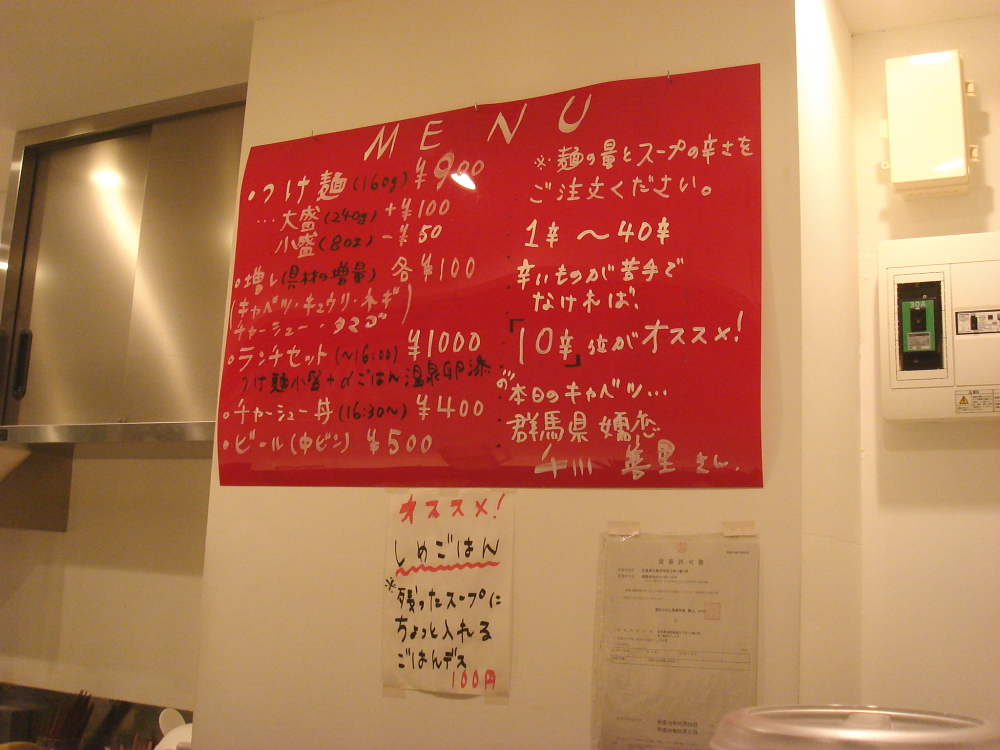 MENU
・つけ麺(160g) ¥900
…大盛(240g) +¥100
小盛(80g) -¥50
・増し(具材の増量) 各¥100
(キャベツ・キュウリ・ネギ)
チャーシュー・タマゴ
・ランチセット(~16:00) ¥1000
つけ麺小盛+αごはん温泉卵添
・チャーシュー丼(16:30~) ¥400
・ビール(中ビン) ¥500
※麺の量とスープの辛さを
ご注文ください。
1辛~40辛
辛いものが苦手で
なければ、
「10辛」位がオススメ!
本日のキャベツ…
群馬県 嬬恋
千川 善里さん.
オススメ!
しめごはん
※残ったスープに
ちょっと入れる
ごはんデス
100円
営業許可書
30A